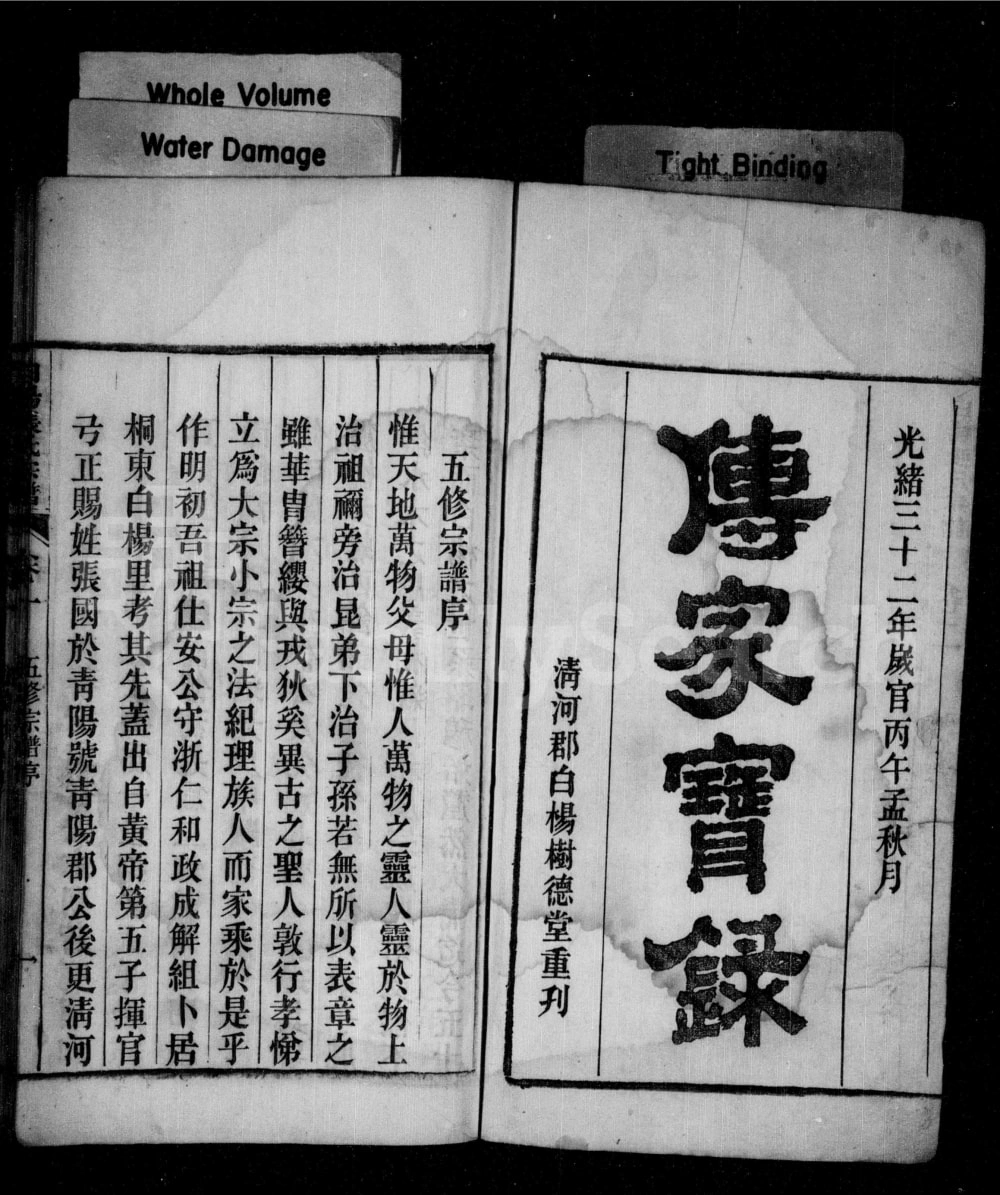 Whole Volume
Water Damage
Tight Binding
光緒三十二年歲官丙午孟秋月
傳家寶録
淸河郡白楊樹德堂重刋
五修宗譜序
惟天地萬物父母惟人萬物之靈人靈於物上
治祖禰旁治昆弟下治子孫若無所以表章之
雖華胄簪纓與戎狄奚異古之聖人敦行孝悌
立爲大宗小宗之法紀理族人而家乘於是乎
作明初吾祖仕安公守浙仁和政成解組卜居
桐東白楊里考其先蓋出自黃帝第五子揮官
弓正賜姓張國於靑陽號靑陽郡公後更淸河
五修宗譜序
一